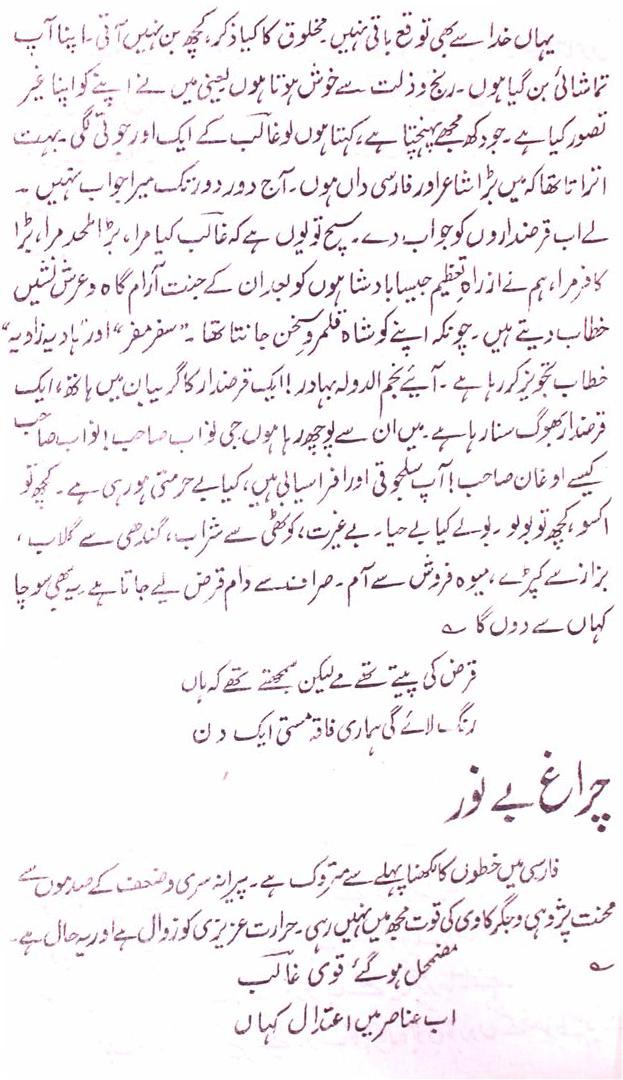 یہاں خدا سے بھی توقع باقی نہیں۔ مخلوق کا کیا ذکر، کچھ بن نہیں آتی۔ اپنا آپ
تماشائی بن گیا ہوں۔ رنج و ذلت سے خوش ہوتا ہوں یعنی میں نے اپنے کو اپنا غیر
تصور کیا ہے۔ جو دکھ مجھے پہنچتا ہے، کہتا ہوں لو غالب کے ایک اور جوتی لگی۔ بہت
اتراتا تھا کہ میں بڑا شاعر اور فارسی داں ہوں۔ آج دور دور تک میرا جواب نہیں۔
لے اب قرضداروں کو جواب دے۔ سچ تو یوں ہے کہ غالب کیا مرا، بڑا ملحد مرا، بڑا
کافر مرا، ہم نے از راہِ تعظیم جیسا بادشاہوں کو بعد ان کے جنت آرام گاہ و عرش نشیں
خطاب دیتے ہیں۔ چونکہ اپنے کو شاہ قلمرو سخن جانتا تھا۔ "سقر مقر" اور "ہاویہ زاویہ"
خطاب تجویز کر رہا ہے۔ آئیے نجم الدولہ بہادر! ایک قرضدار کا گریبان میں ہاتھ، ایک
قرضدار بھوگ سنا رہا ہے۔ میں ان سے پوچھ رہا ہوں جی نواب صاحب! نواب صاحب
کیسے اوغان صاحب! آپ سلجوقی اور افراسیابی ہیں، کیا بے حرمتی ہو رہی ہے۔ کچھ تو
اکسو، کچھ تو بولو۔ بولے کیا بے حیا۔ بے غیرت، کوٹھی سے شراب، گندھی سے گلاب،
بزاز سے کپڑے، میوہ فروش سے آم۔ صراف سے دام قرض لیے جاتا ہے۔ یہ بھی سوچا
کہاں سے دوں گا ؎
قرض کی پیتے تھے مے لیکن سمجھتے تھے کہ ہاں
رنگ لائے گی ہماری فاقہ مستی ایک دن
چراغ بے نور
فارسی میں خطوں کا لکھنا پہلے سے متروک ہے۔ پیرانہ سری و ضعف کے صدموں سے
محنت پژوہی و جگر کاوی کی قوت مجھ میں نہیں رہی۔ حرارت عزیزی کو زوال ہے اور یہ حال ہے۔
؎ مضمحل ہو گئے قوی غالب
اب عناصر میں اعتدال کہاں